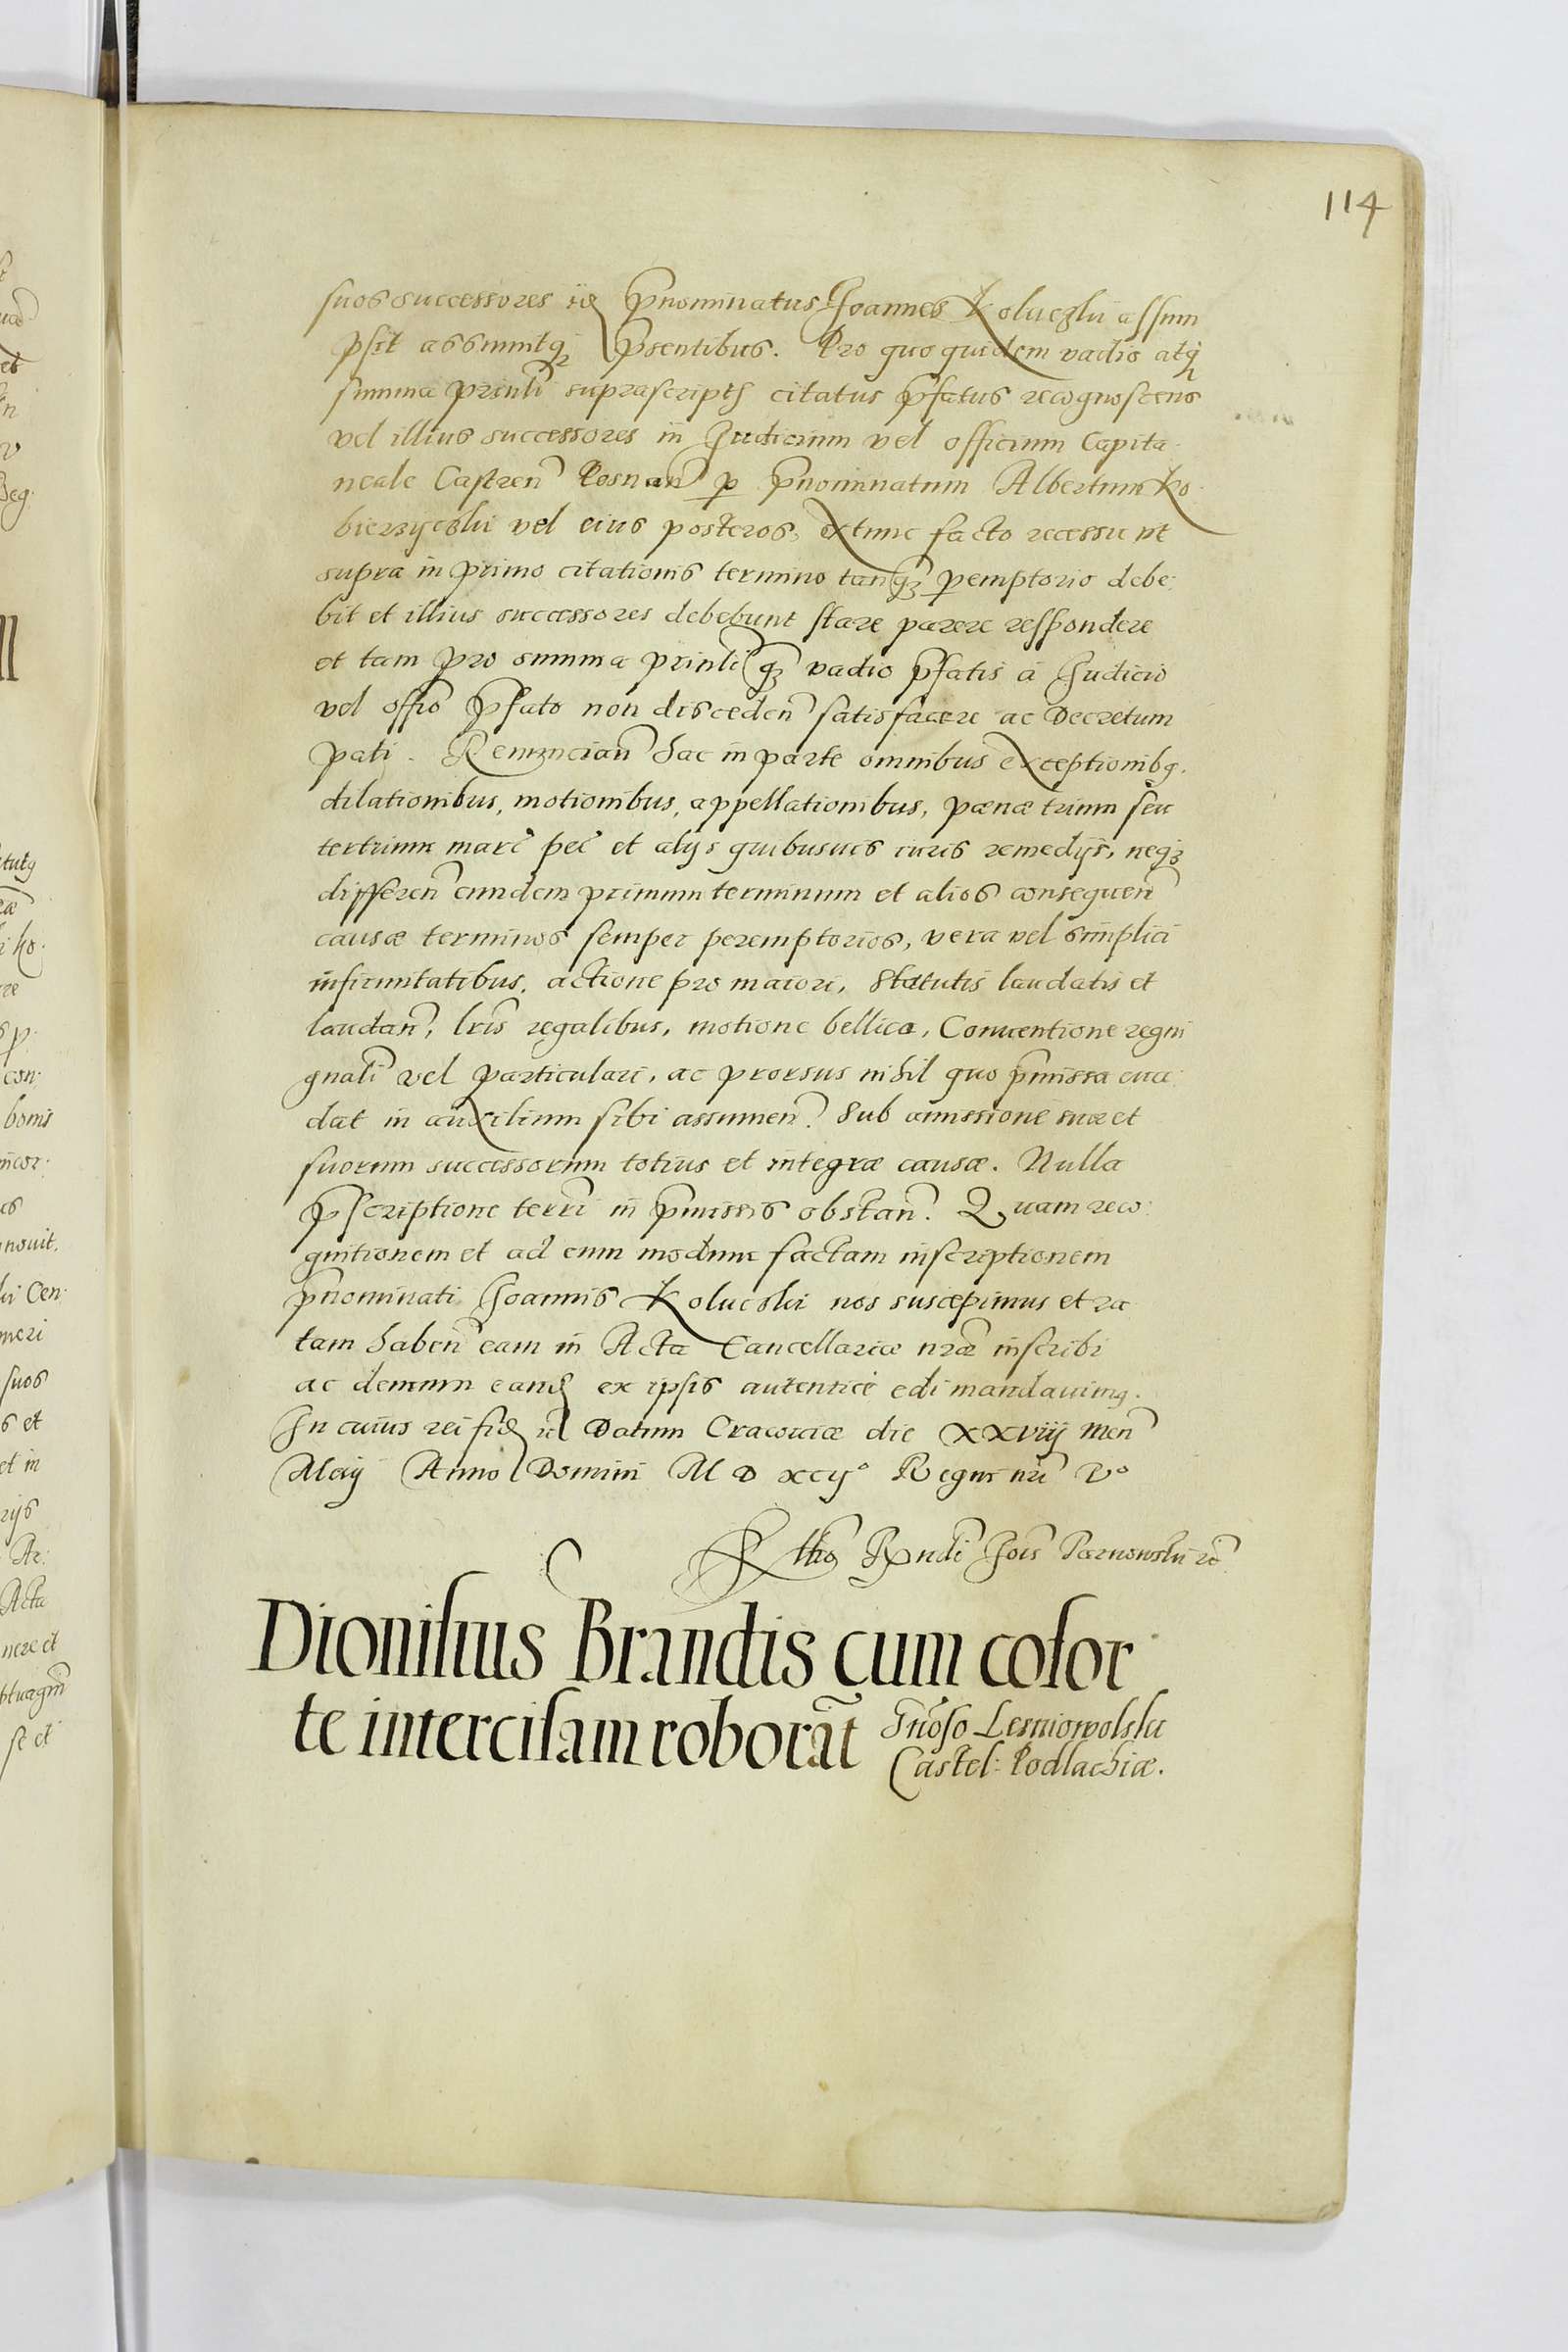 114
suos successores id pnominatus Joannes Koluczki assum
psit assumitq psentibus. Pro quo quidem vadio atq
summa prinli suprascripts citatus pfatus recognoscens
vel illius successores in Judicium vel officium Capita
neale Castren Posnan p pnominatum Albertum Ko
bierzyczki vel eius posteros, extunc facto recessu ut
supra in primo citationis termino tanq pemptorio debe
bit et illius successores debebunt stare parere respondere
et tam pro summa prinli q vadio pfatis à Judicio
vel offio pfato non disceden satisfacere ac Decretum
pati. Renuncian hac in parte omnibus exceptionibq.
dilationibus, motionibus, appellationibus, pænæ trium seu
tertium marc pec et alijs quibusvis iuris remedijs, neq
differen eundem primum terminum et alios consequen
causæ terminos semper peremptorios, vera vel simplici
infirmitatibus, actione pro maiori, Statutis laudatis et
laudan, lris regalibus, motione bellica, Conventione regni
gnali vel particulari, ac prorsus nihil quo pmissa eva
dat in auxilium sibi assumen. Sub amissione suæ et
suorum successorum totius et integræ causæ. Nulla
pscriptione terri in pmissis obstan. Quam reco
gnitionem et ad eum modum factam inscriptionem
pnominati Joannis Kolucski nos suscepimus et ra
tam haben eam in Acta Cancellariæ nræ inscribi
ac demum eand ex ipsis autenticè edi mandavimq.
In cuius rei fid Datum Cracoviæ die XXVIIJ Men
Maij Anno Domini M D XCIJ° Regni nri V°
Rndi Jois Tarnowski
Dionisius Brandis cum cosor
te intercisam roborāt Gnoso Lesniowolski
Castel: Podlachiæ.